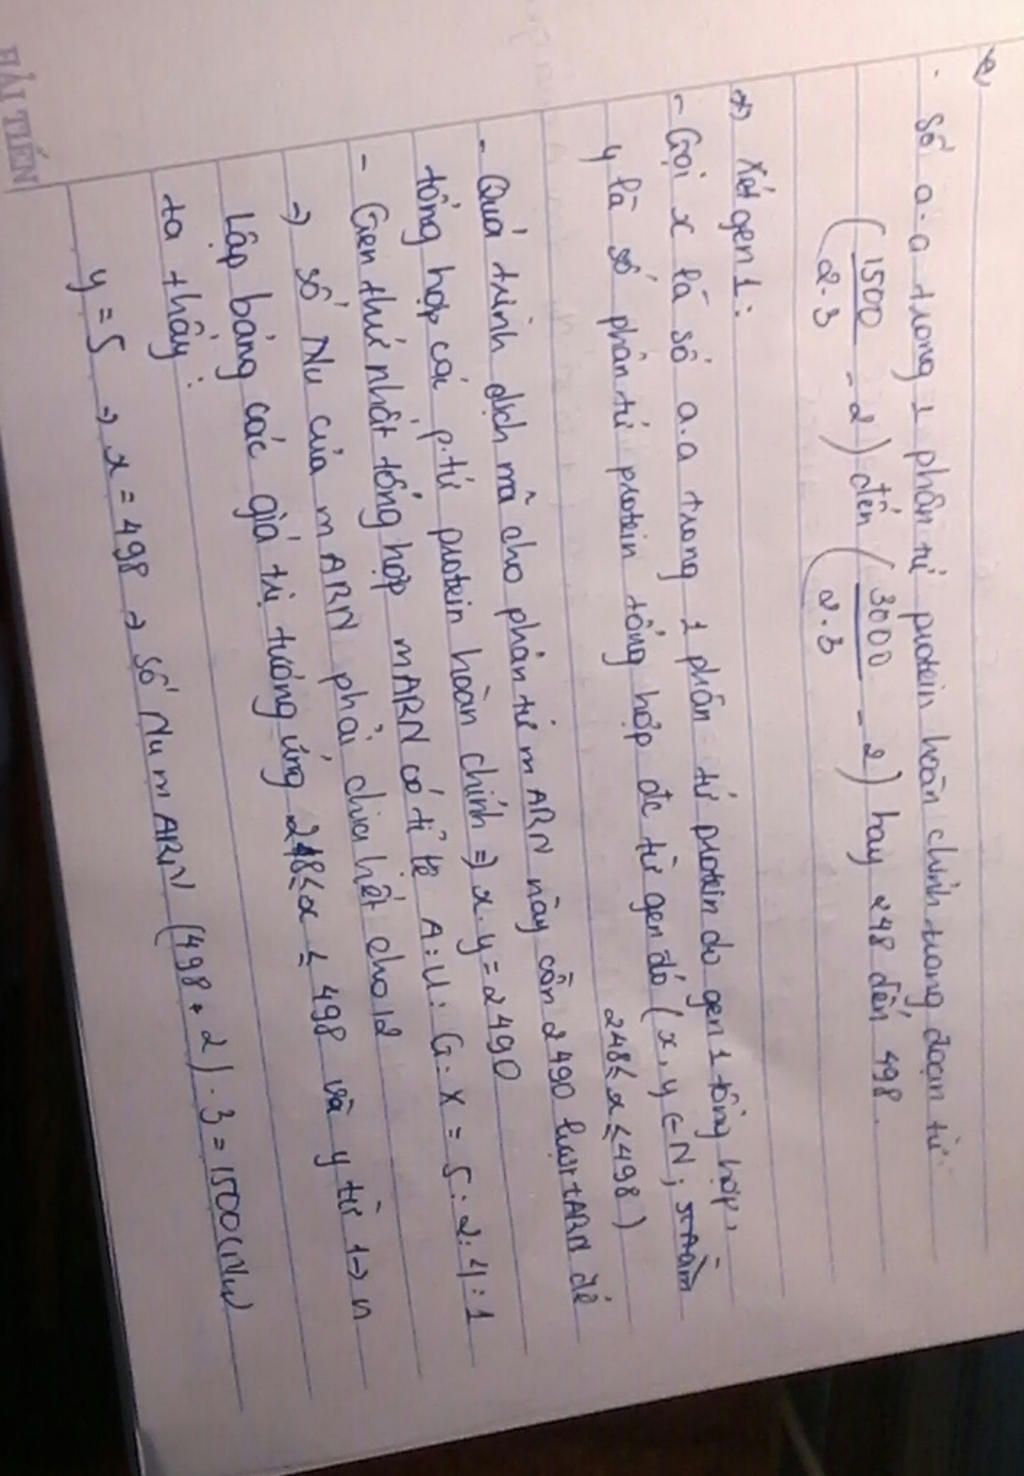 2)
- Số a.a trong 1 phân tử protein hoàn chỉnh trong đoạn từ
(1500/2.3 - 2) đến (3000/2.3 - 2) hay 248 đến 498.
*) Xét gen 1:
- Gọi x là số a.a trong 1 phân tử protein do gen 1 tổng hợp,
y là số phân tử protein tổng hợp đc từ gen đó (x, y ∈ N;
248 ≤ x ≤ 498)
- Quá trình dịch mã cho phân tử mARN này cần 2490 lượt tARN để
tổng hợp các p.tử protein hoàn chỉnh => x.y = 2490
- Gen thứ nhất tổng hợp mARN có tỉ lệ A:U:G:X = 5:2:4:1
=> số Nu của mARN phải chia hết cho 12
Lập bảng các giá trị tương ứng 248 ≤ x ≤ 498 và y từ 1 → n
ta thấy:
y = 5 => x = 498 => số Nu mARN (498 + 2).3 = 1500 (Nu)
HẢI TIẾN